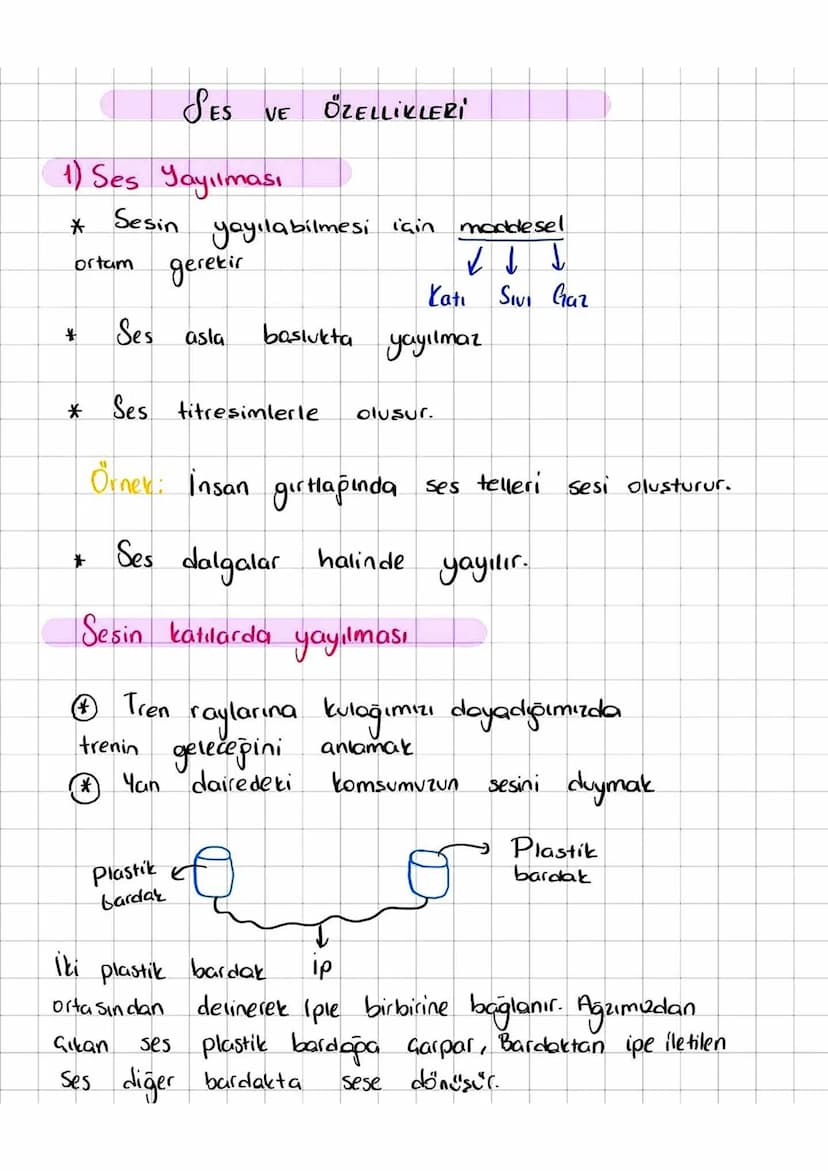 SES VE ÖZELLİKLERİ
1) Ses Yayılması
* Sesin yayılabilmesi için maddesel
ortam gerekir
Katı Sıvı Gaz
* Ses asla boslukta yayılmaz
* Ses titresimlerle olusur.
Örnek: İnsan gırtlağında ses telleri sesi olusturur.
* Ses dalgalar halinde yayılır.
Sesin katılarda yayılması
* Tren raylarına kulağımızı dayadığımızda
trenin geleceğini anlamak
* Yan dairedeki komsumuzun sesini duymak
Plastik
bardak
Plastik
bardak
ip
İki plastik bardak
ortasından delinerek iple birbirine bağlanır. Ağzımızdan
Çıkan ses plastik bardağa Çarpar, Bardaktan ipe iletilen
Ses diğer bardakta sese dönüsür.